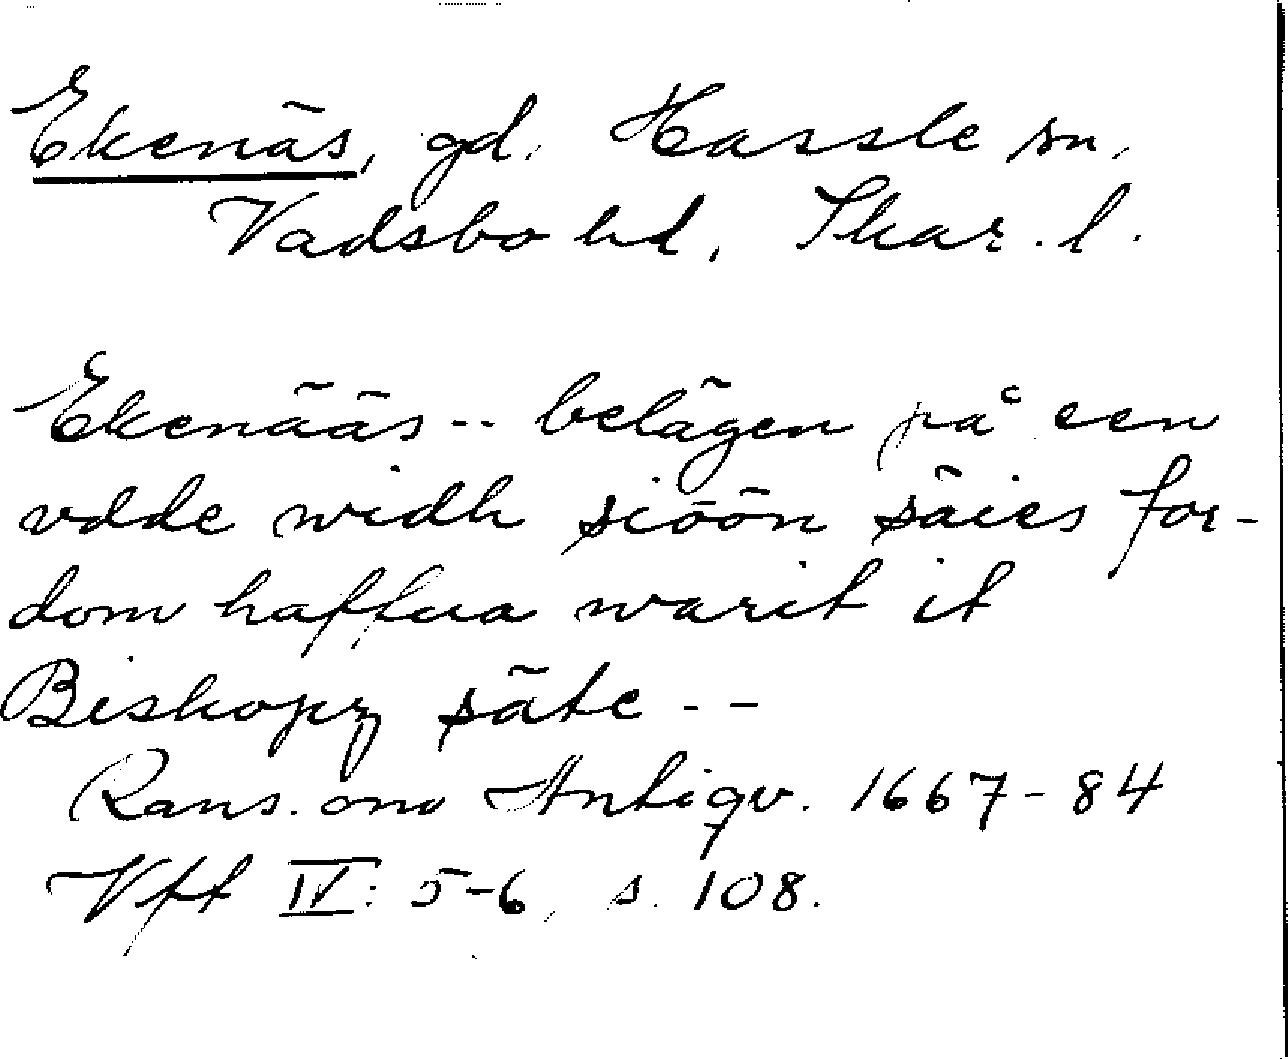 Ekenäs, gd. Hassle sn,
Vadsbo hd, Skar. l.
Ekenääs -- belägen på een
vdde widh siöön säies for-
dom haffua warit it
Biskopz säte --
Rans. om Antiqv. 1667-84
Vft IV: 5-6, s. 108.